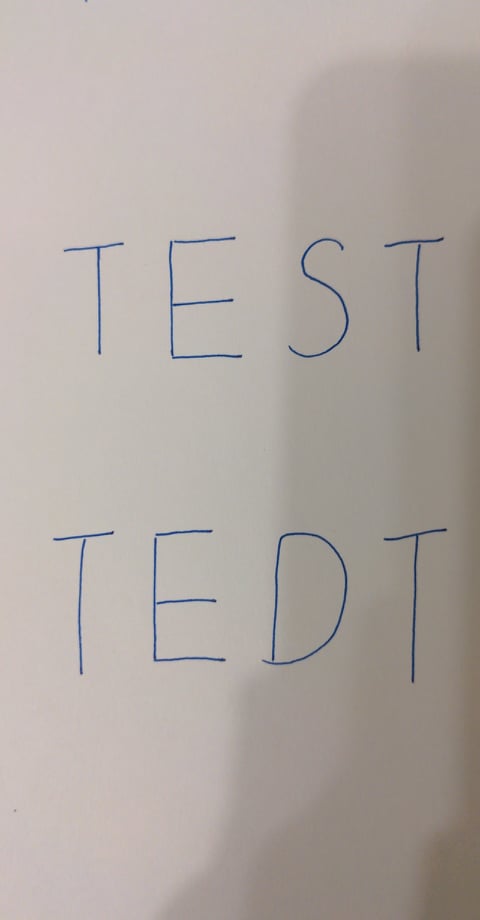 TEST
TEDT